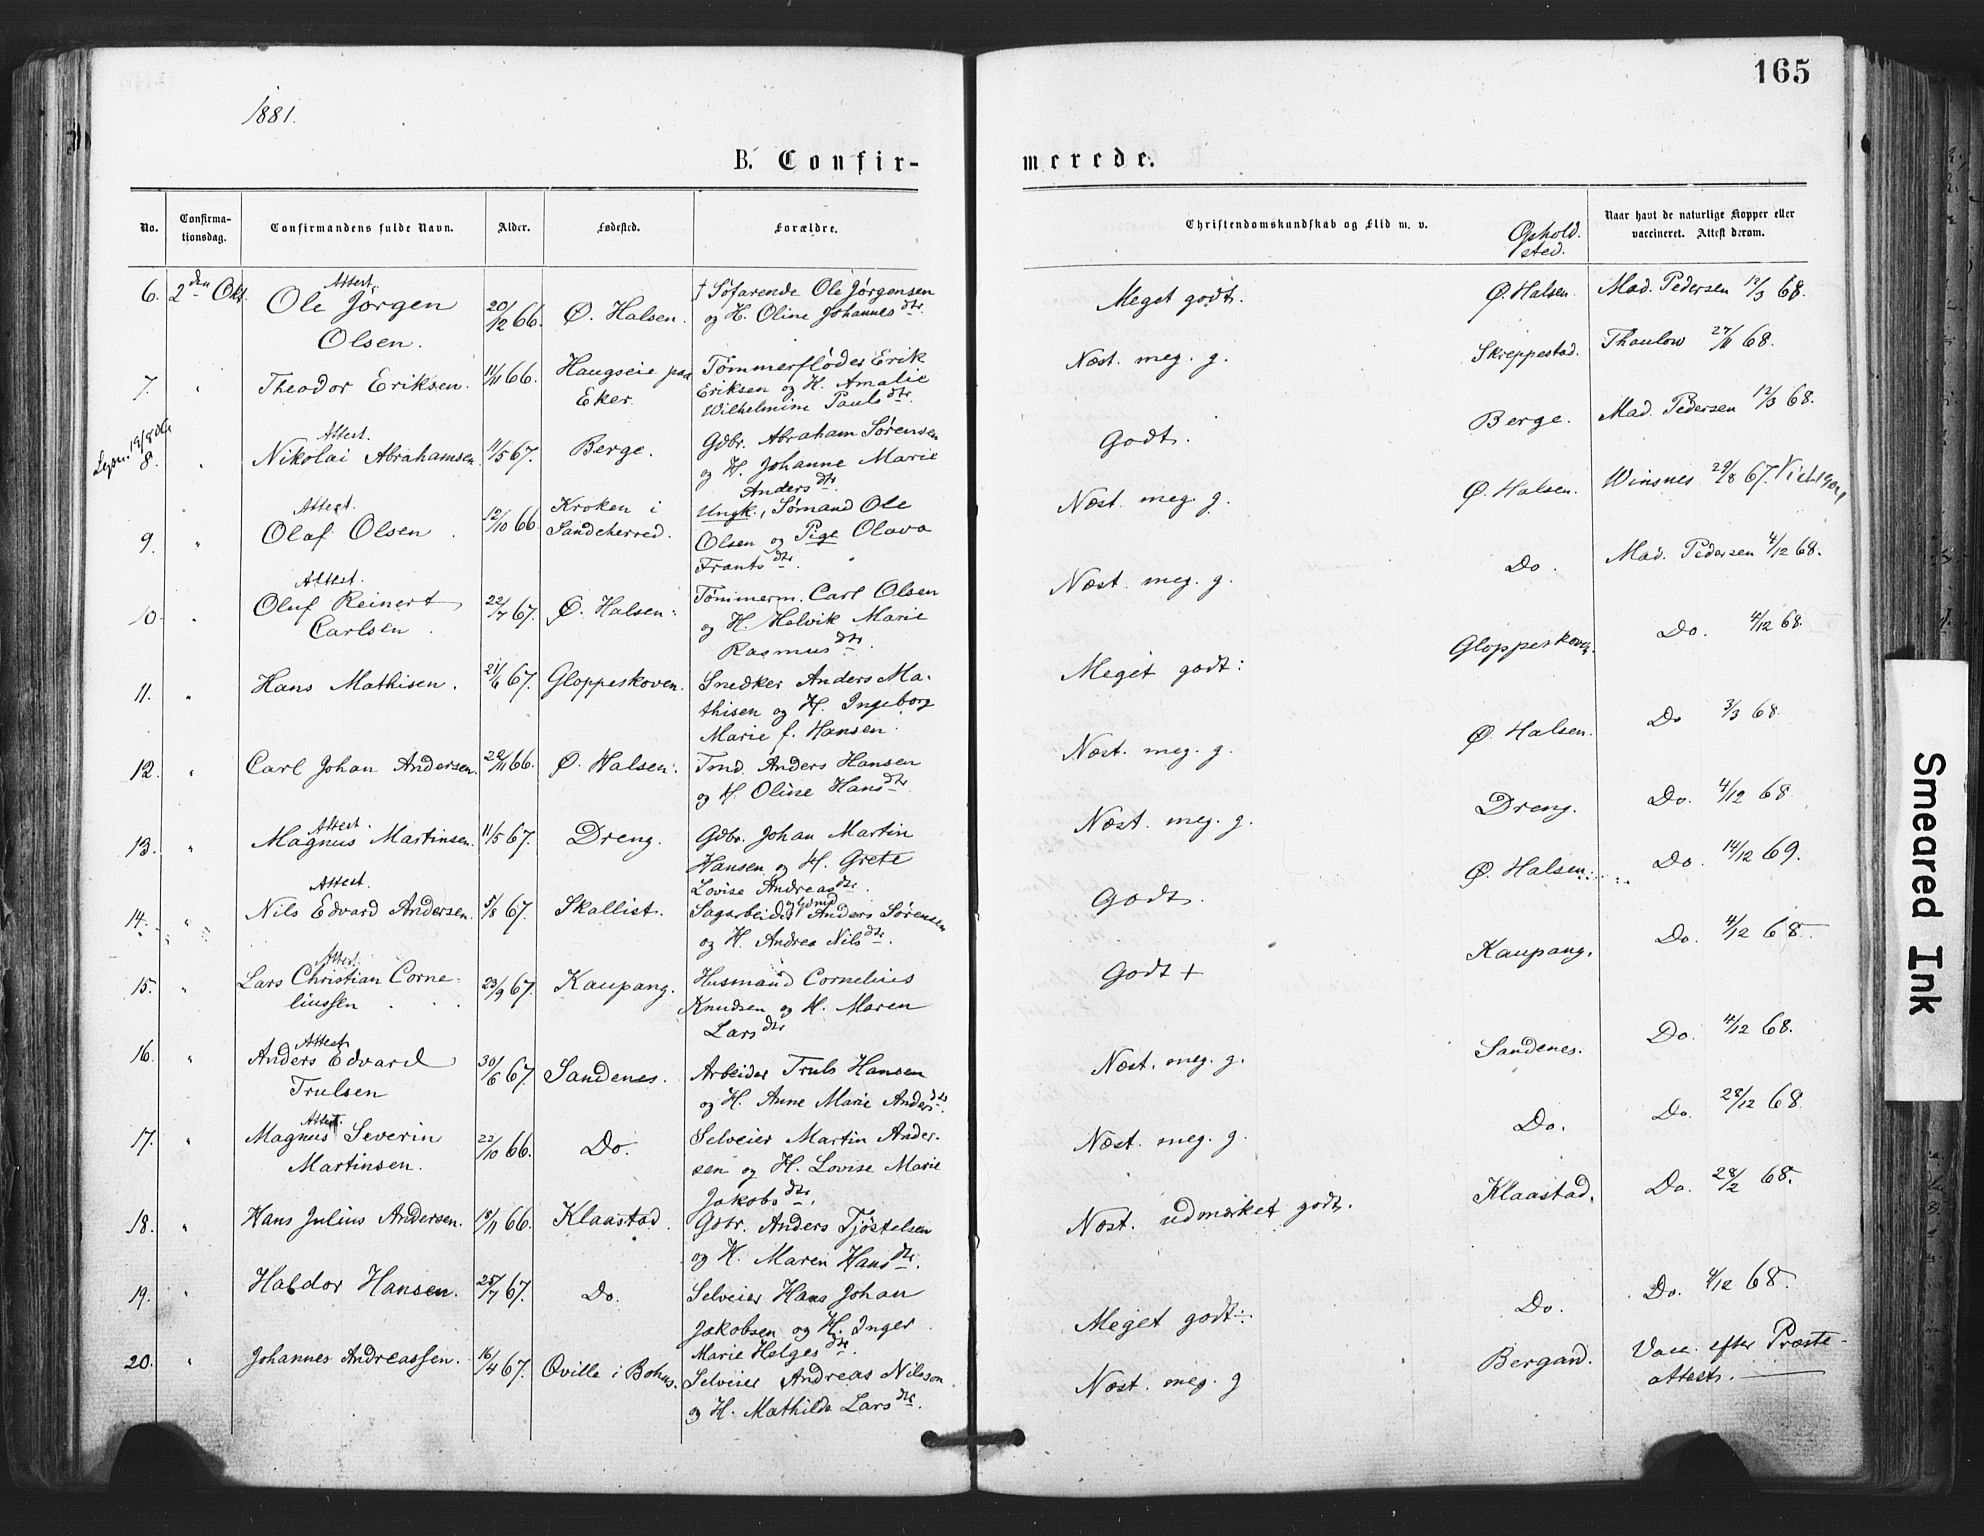 1881.
165
B. Confir-
merede.
No. Confirma-tionsdag. Confirmandens fulde Navn. Alder. Fødested. Forældre. Christendomskundskab og Flid m. v. Ophold.sted. Naar havt de naturlige Kopper eller vaccineret. Attest derom.
6. 2den Okt. Attest. Ole Jørgen Olsen. 20/12 66. Ø. Halsen. † Søfarende Ole Jørgensen og H. Oline Johannesdtr Meget godt. Ø. Halsen. Mad. Pedersen 12/3 68.
7. " Theodor Eriksen. 11/11 66. Haugseie paa Eker. Tømmerfløder Erik Eriksen og H. Amalie Wilhelmine Paulsdtr. Næst. meg. g. Skreppestad. Thaulow 27/11 68.
8. " Attest. Nikolai Abrahamsen. 11/5 67. Berge. Gdbr. Abraham Sørensen og H. Johanne Marie Andersdtr. Godt. Berge. Mad. Pedersen 12/3 68.
9. " Attest. Olaf Olsen. 12/10 66. Kroken i Sandeherred. Ungk., Sømand Ole Olsen og Pige Olava Frantsdtr. Næst. meg. g. Ø. Halsen. Winsnes 29/8 67.
10. " Attest. Oluf Reinert Carlsen. 22/7 67. Ø. Halsen. Tømmerm. Carl Olsen og H. Helvik Marie Rasmusdtr. Næst. meg. g. Do. Mad. Pedersen 4/12 68.
11. " Hans Mathisen. 21/6 67. Gloppeskoven. Snedker Anders Ma-thisen og H. Ingeborg Marie f. Hansen. Meget godt: Gloppeskoven. Do. 4/12 68.
12. " Carl Johan Andersen. 29/11 66. Ø. Halsen. Tmd. Anders Hansen og H. Oline Hansdtr. Næst. meg. g. Ø. Halsen. Do 3/3 68.
13. " Attest. Magnus Martinsen. 11/5 67. Dreng. Gdbr. Johan Martin Hansen og H. Grete Lovise Andreasdtr. Næst. meg. g. Dreng. Do. 4/12 68
14. " Attest. Nils Edvard Andersen. 5/8 67. Skallist. Sagarbeider Anders Sørensen og H. Andrea Nilsdtr. Godt. Ø. Halsen. Do. 14/12 69.
15. " Attest. Lars Christian Corne-liussen 23/9 67. Kaupang. Husmand Cornelius Knudsen og H. Maren Larsdtr Godt + Kaupang. Do. 4/12 68.
16. " Attest. Anders Edvard Trulsen 30/6 67. Sandenes. Arbeider Truls Hansen og H. Anne Marie Andersdtr. Næst. meg. g. Sandenes. Do. 4/12 68.
17. " Attest. Magnus Severin Martinsen. 22/10 66. Do. Selveier Martin Ander-sen og H. Lovise Marie Jakobsdtr. Næst. meg. g. Do. Do. 28/12 68
18. " Hans Julius Andersen. 18/11 66. Klaastad. Gdbr. Anders Tjøstelsen og H. Maren Hansdtr. Næst. udmærket godt. Klaastad. Do. 28/2 68.
19. " Haldor Hansen. 25/7 67. Do. Selveier Hans Johan Jakobsen og H. Inger Marie Helgesdtr. Meget godt: Do. Do. 4/12 68.
20. " Johannes Andreassen. 16/4 67. Qville i Bohus. Selveier Andreas Nilsson og H. Mathilda Larsdtr. Næst. meg. g Bergand. Vacc. efter Præste-attest.
Smeared Ink